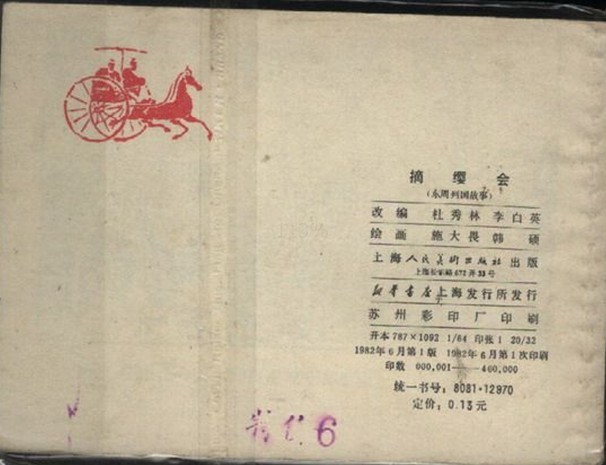 摘缨会
(东周列国故事)
改编 杜秀林 李白英
绘画 施大畏 韩硕
上海人民美术出版社出版
上海长乐路672弄33号
新华书店上海发行所发行
苏州彩印厂印刷
开本 787×1092 1/64 印张 1 20/32
1982年6月第1版 1982年6月第1次印刷
印数 000,001——460,000
统一书号: 8081·12970
定价: 0.13元
6